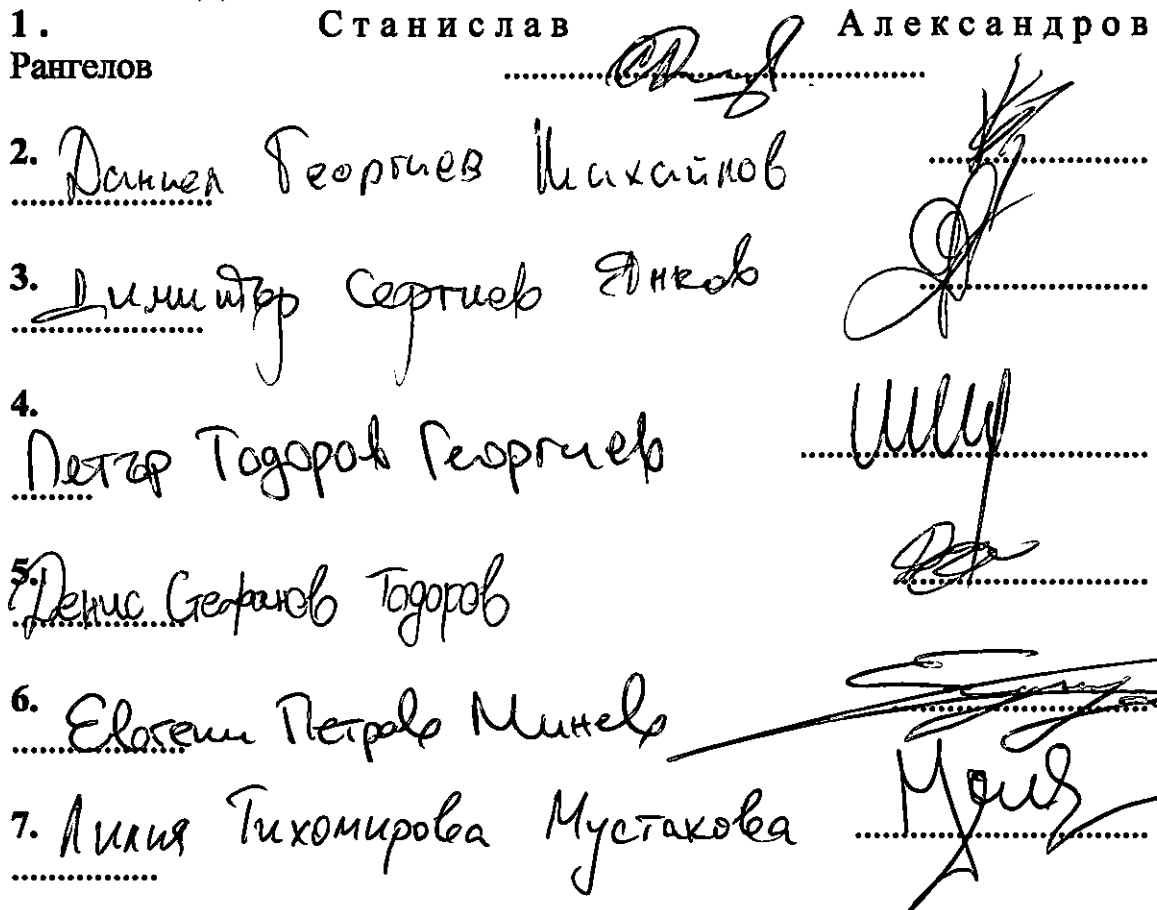 1. Станислав Александров
Рангелов
2. Даниел Георгиев Михайлов
3. Димитър Сергиев Янков
4.
Петър Тодоров Георгиев
5. Денис Стефанов Тодоров
6. Евгени Петров Минев
7. Лилия Тихомирова Мустакова